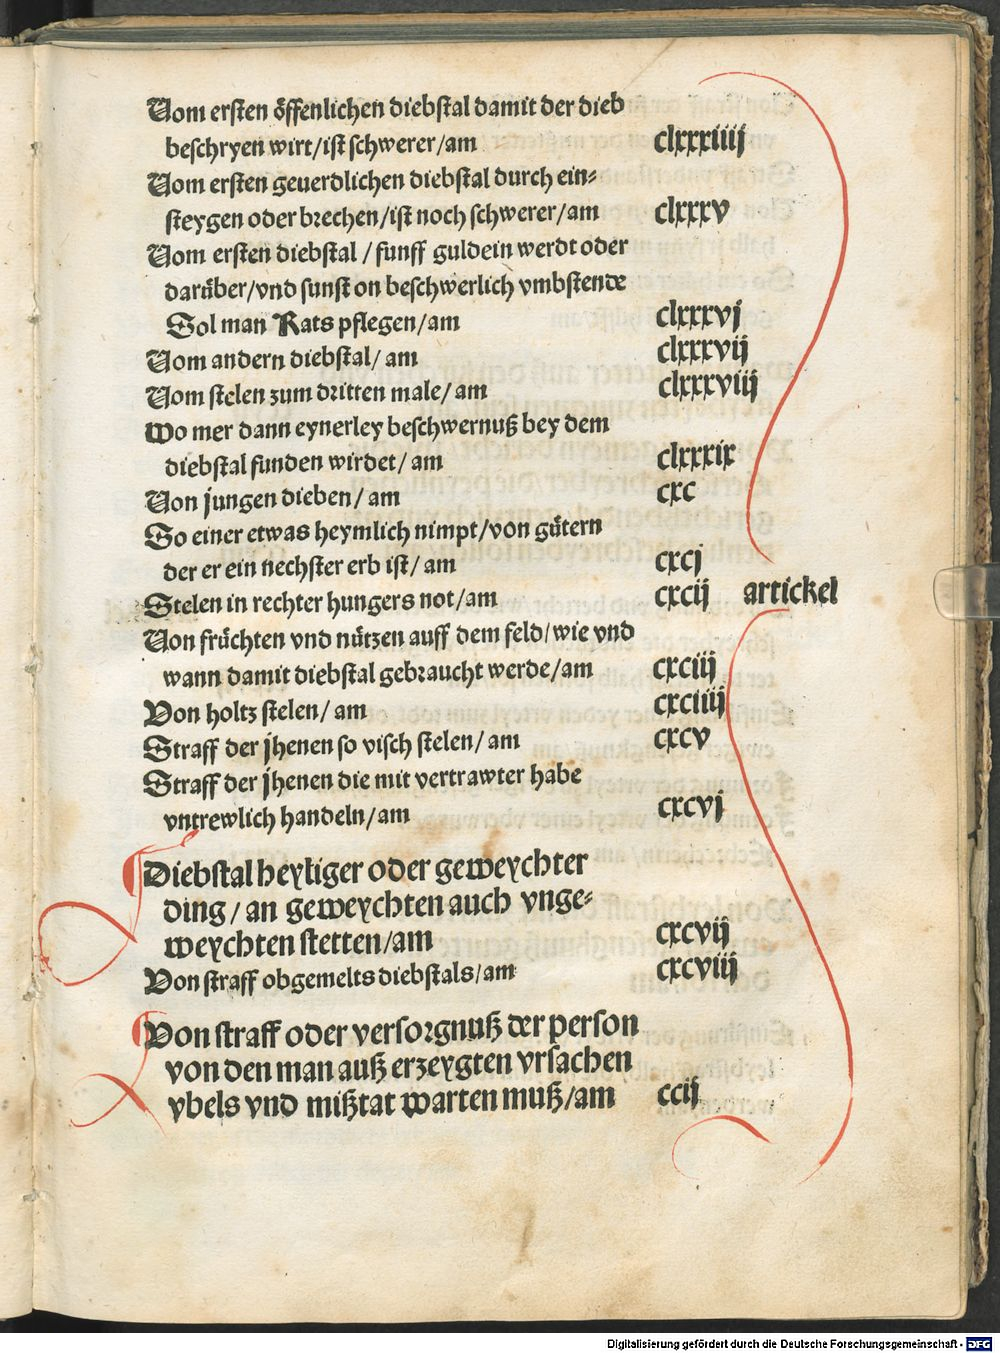 Vom ersten öffenlichen diebstal damit der dieb
beschryen wirt/ist schwerer/am clxxxiiij
Vom ersten geuerdlichen diebstal durch ein-
steygen oder brechen/ist noch schwerer/am clxxxv
Vom ersten diebstal/funff guldein werdt oder
darüber/vnd sunst on beschwerlich vmbstende
Sol man Rats pflegen/am clxxxvj
Vom andern diebstal/am clxxxvij
Vom stelen zum dritten male/am clxxxviij
Wo mer dann eynerley beschwernuß bey dem
diebstal funden wirdet/am clxxxix
Von jungen dieben/am cxc
So einer etwas heymlich nimpt/von gütern
der er ein nechster erb ist/am cxcj
Stelen in rechter hungers not/am cxcij artickel
Von früchten vnd nützen auff dem feld/wie vnd
wann damit diebstal gebraucht werde/am cxciij
Von holtz stelen/am cxciiij
Straff der jhenen so visch stelen/am cxcv
Straff der jhenen die mit vertrawter habe
vntrewlich handeln/am cxcvj
Diebstal heyliger oder geweychter
ding/an geweychten auch vnge-
weychten stetten/am cxcvij
Von straff obgemelts diebstals/am cxcviij
Von straff oder versorgnuß der person
von den man auß erzeygten vrsachen
vbels vnd mißtat warten muß/am ccij
Digitalisierung gefördert durch die Deutsche Forschungsgemeinschaft - DFG